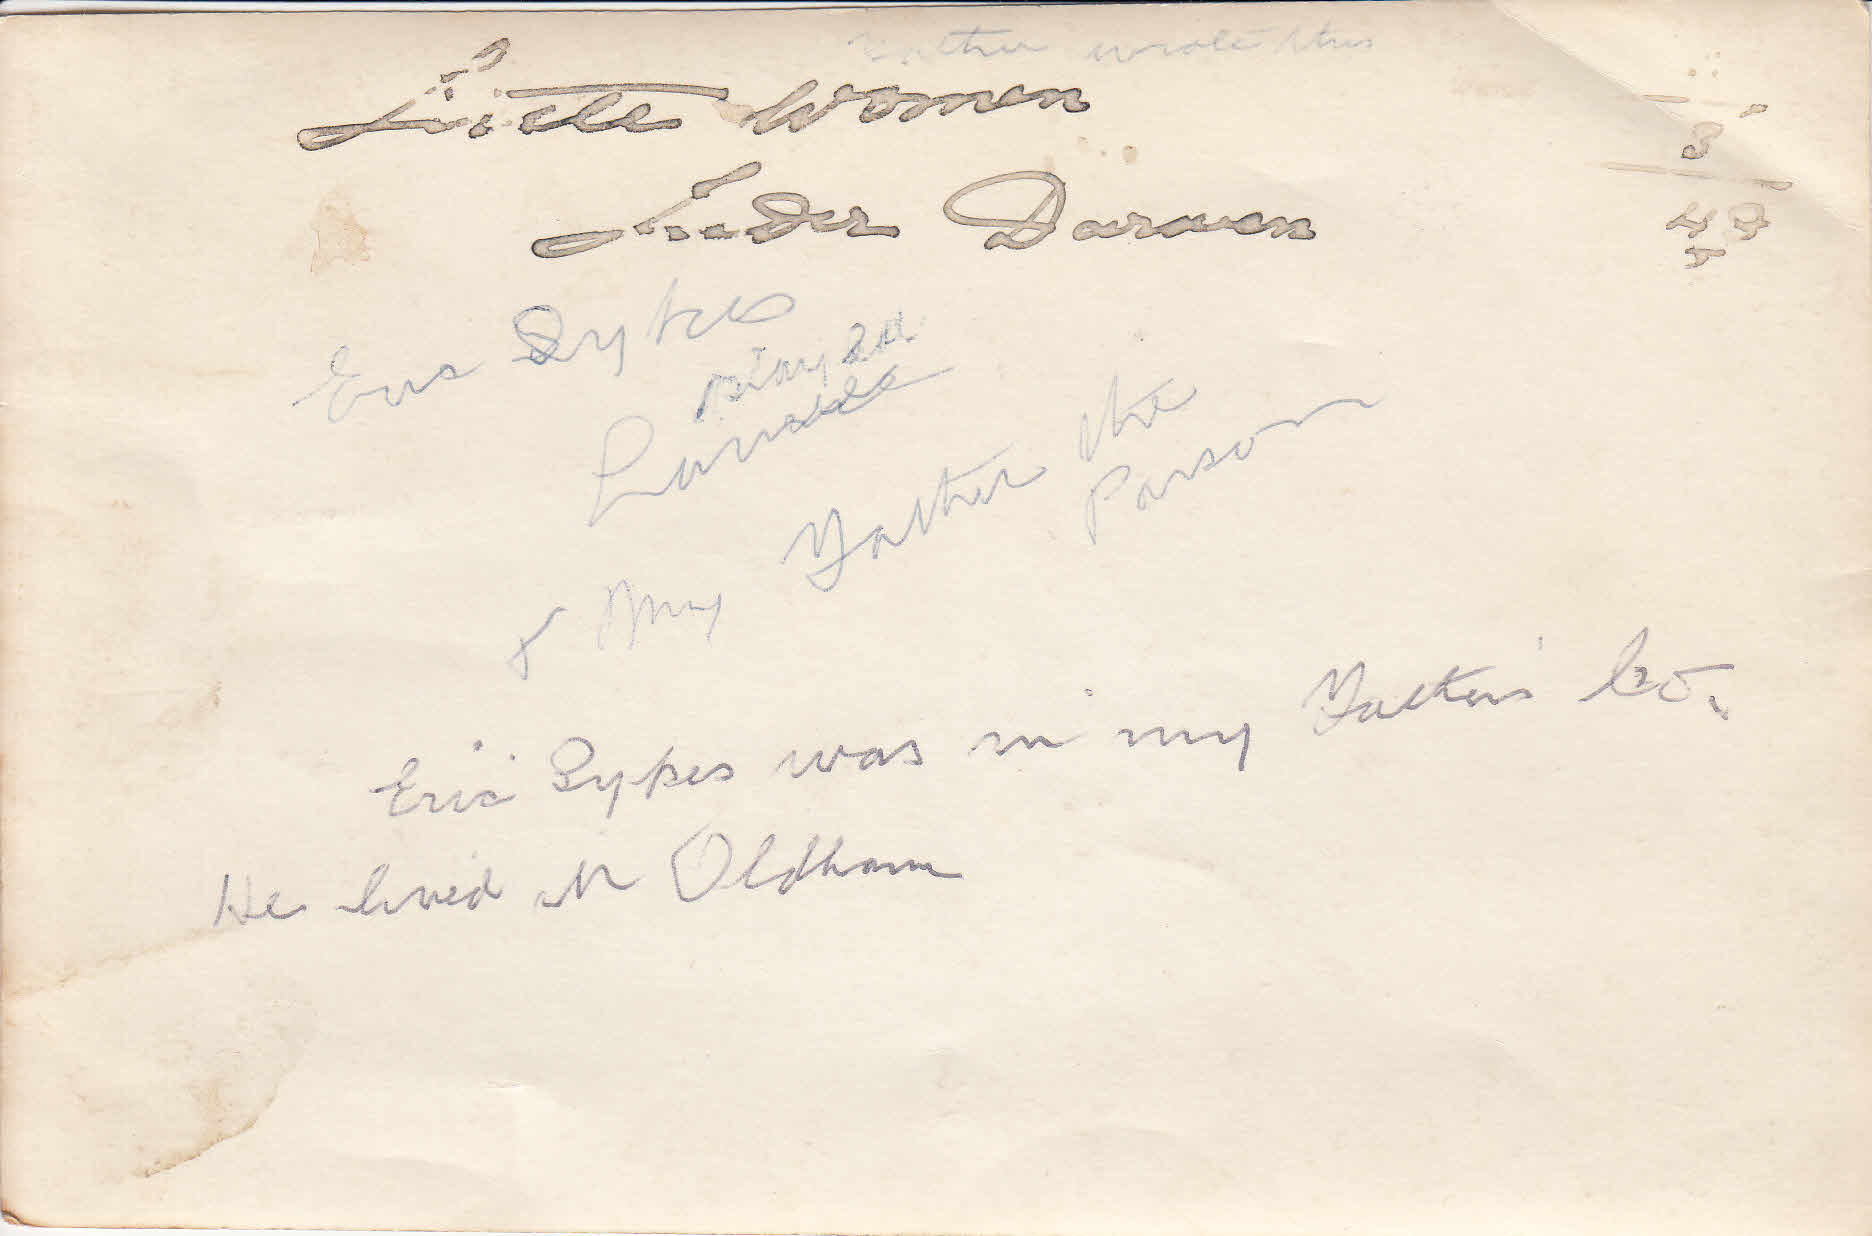 Father wrote this
Little Women
Under Darwen
3
43
Eric Sykes
played
Laurie
& My Father the
Parson
Eric Sykes was in my Father's Co.
He lived in Oldham